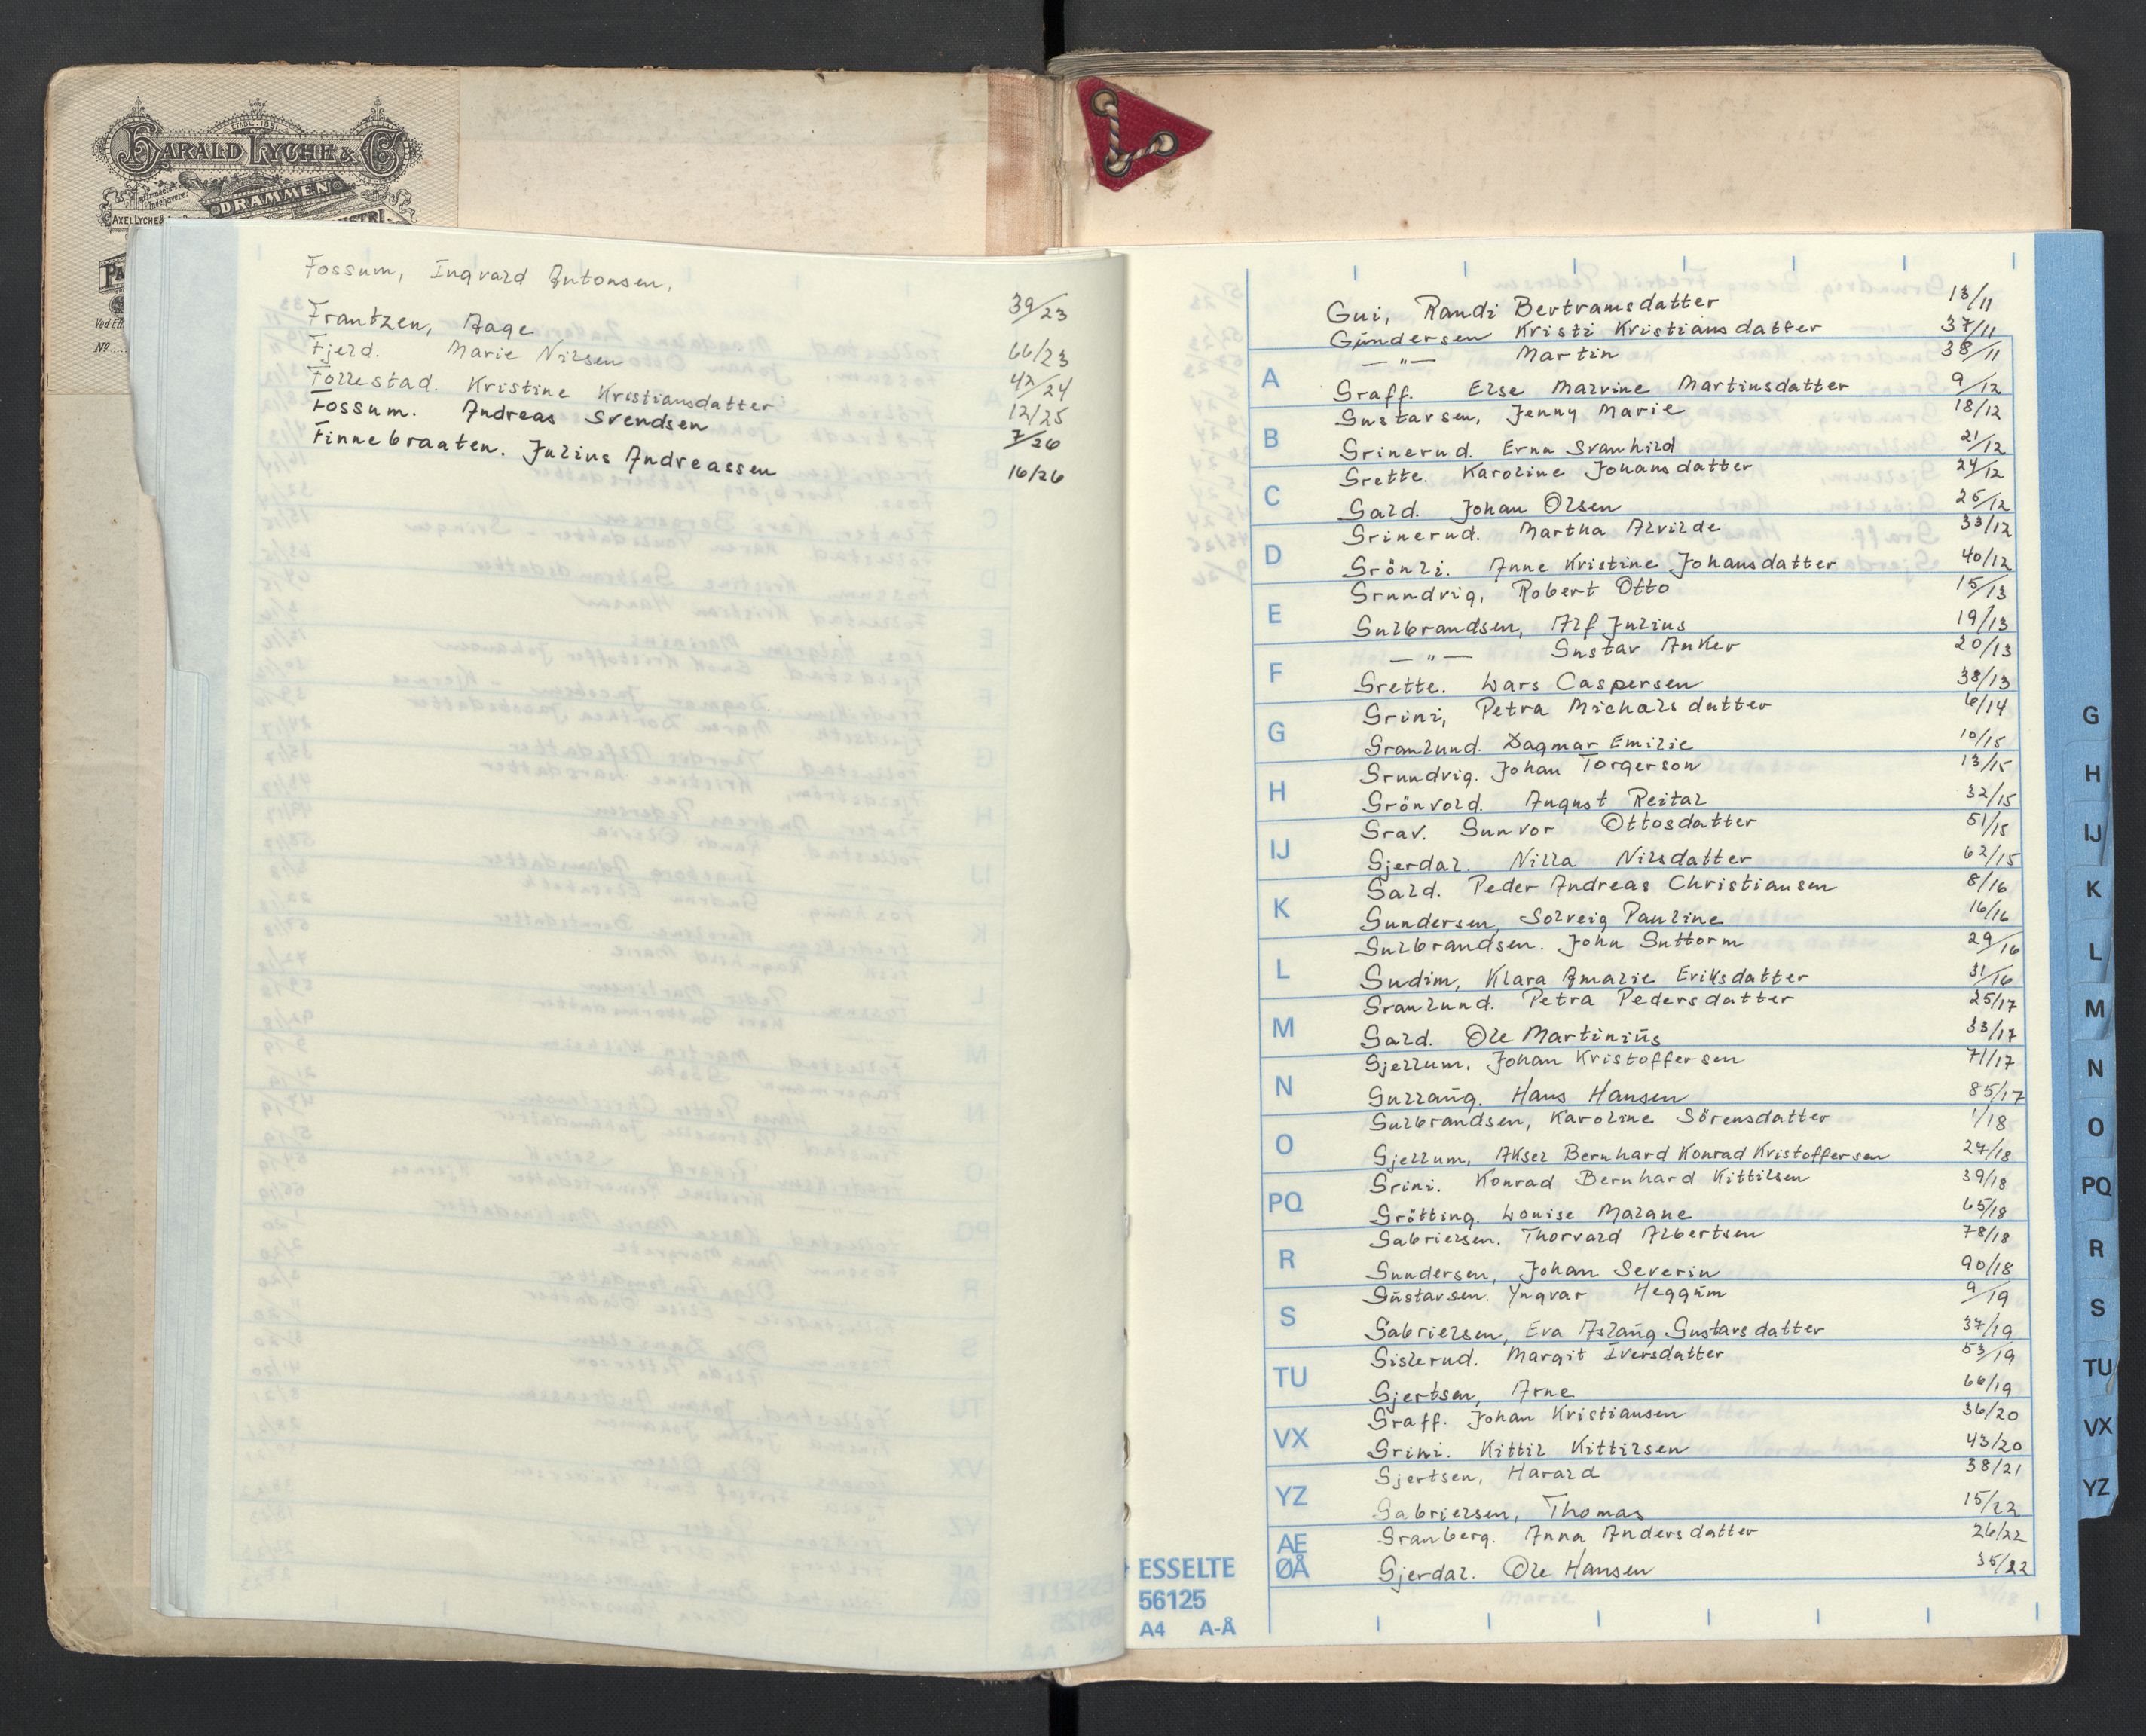 ETABL. 1881
HARALD LYCHE & Co
DRAMMEN
AXEL LYCHE &
No
Fossum, Ingvald Antonsen. 39/23
Frantzen, Aage 66/23
Fjeld. Marie Nilsen 42/24
Follestad. Kristine Kristiansdatter 12/25
Fossum. Andreas Svendsen 7/26
Finnebraaten. Julius Andreassen 16/26
Gui, Randi Bertramsdatter 13/11
Gundersen Kristi Kristiansdatter 37/11
—"— Martin 38/11
Graff. Else Malvine Martinsdatter 9/12
Gustavsen, Jenny Marie 18/12
Grinerud. Erna Svanhild 21/12
Grette. Karoline Johansdatter 24/12
Gald. Johan Olsen 25/12
Grinerud. Martha Alvilde 33/12
Grönli. Anne Kristine Johansdatter 40/12
Grundvig, Robert Otto 15/13
Gulbrandsen, Alf Julius 19/13
—"— Gustav Anker 20/13
Grette. Lars Caspersen 38/13
Grini, Petra Michalsdatter 6/14
Granlund. Dagmar Emilie 10/15
Grundvig. Johan Torgerson 13/15
Grönvold. August Reital 32/15
Grav. Gunvor Ottosdatter 51/15
Gjerdal. Nilla Nilsdatter 62/15
Gald. Peder Andreas Christiansen 8/16
Gundersen, Solveig Pauline 16/16
Gulbrandsen. John Guttorm 29/16
Gudim, Klara Amalie Eriksdatter 31/16
Granlund. Petra Pedersdatter 25/17
Gald. Ole Martinius 33/17
Gjellum. Johan Kristoffersen 71/17
Gullaug. Hans Hansen 85/17
Gulbrandsen, Karoline Sörensdatter 1/18
Gjellum, Aksel Bernhard Konrad Kristoffersen 27/18
Grini. Konrad Bernhard Kittilsen 39/18
Grötting. Louise Malane 65/18
Gabrielsen. Thorvald Albertsen 78/18
Gundersen, Johan Severin 90/18
Gustavsen. Yngvar Heggum 9/19
Gabrielsen, Eva Aslaug Gustavsdatter 37/19
Gislerud. Margit Iversdatter 53/19
Gjertsen, Arne 66/19
Graff. Johan Kristiansen 36/20
Grini. Kittil Kittilsen 43/20
Gjertsen, Harald 38/21
Gabrielsen, Thomas 15/22
Granberg. Anna Andersdatter 26/22
Gjerdal. Ole Hansen 35/22
A
B
C
D
E
F
G
H
IJ
K
L
M
N
O
PQ
R
S
TU
VX
YZ
AE
ØÅ
ESSELTE
56125
A4 A-Å
G
H
IJ
K
L
M
N
O
PQ
R
S
TU
VX
YZ